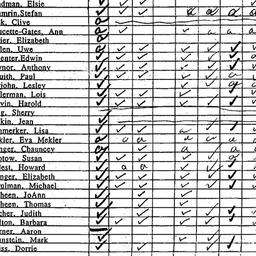 dman, Elsie
umrin, Stefan
k, Clive
ucette-Gates, Ann
ier, Elizabeth
len, Uwe
enter, Edwin
ynor, Anthony
uith, Paul
rjohn, Lesley
llerman, Lois
rvin, Harold
g, Sherry
kin, Jean
nmerker, Lisa
kler, Eva Mekler
nger, Chauncey
ptow, Susan
lest, Howard
nger, Elizabeth
ulman, Michael
heen, JoAnn
heen, Thomas
cher, Judith
lton, Barbara
rner, Aaron
unstein, Mark
iss, Dorrie